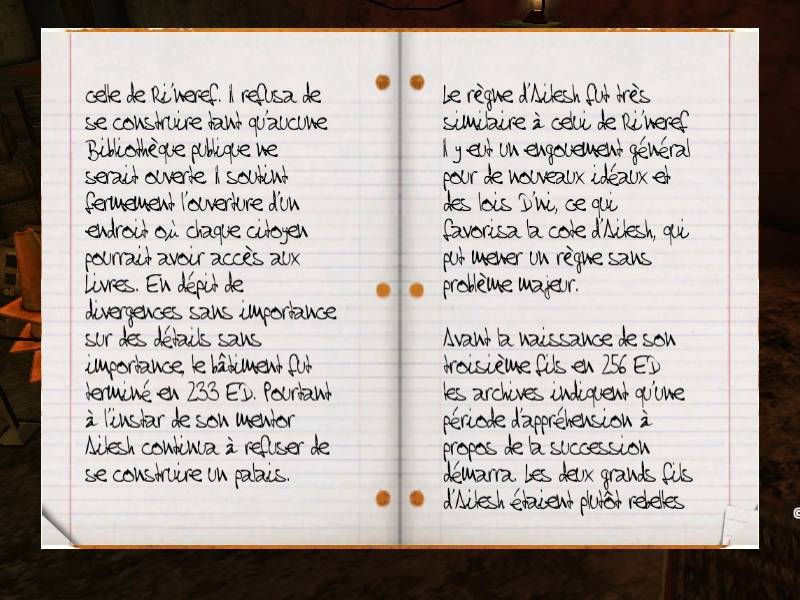 celle de Ri'neref. Il refusa de
se construire tant qu'aucune
Bibliothèque publique ne
serait ouverte. Il soutint
fermement l'ouverture d'un
endroit où chaque citoyen
pourrait avoir accès aux
Livres. En dépit de
divergences sans importance
sur des détails sans
importance, le bâtiment fut
terminé en 233 ED. Pourtant
à l'instar de son mentor
Ailesh continua à refuser de
se construire un palais.
Le règne d'Ailesh fut très
similaire à celui de Ri'neref
Il y eut un engouement général
pour de nouveaux idéaux et
des lois D'ni, ce qui
favorisa la cote d'Ailesh, qui
put mener un règne sans
problème majeur.
Avant la naissance de son
troisième fils en 256 ED
les archives indiquent qu'une
période d'appréhension à
propos de la succession
démarra. Les deux grands fils
d'Ailesh étaient plutôt rebelles